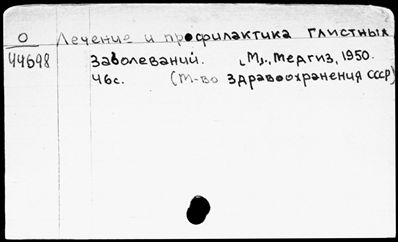 О Лечение и профилактика глистных
44698 заболеваний. [М]., Медгиз, 1950.
46с. (М-во здравоохранения СССР)